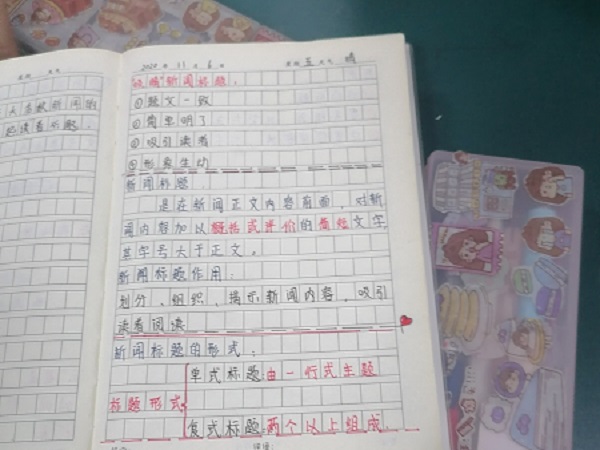 2020 年 11 月 6 日 星期 五 天气 晴
新闻标题:
①题文一致
②简单明了
③吸引读者
④形象生动
新闻标题:
是在新闻正文内容前面,对新
闻内容加以概括或评价的简短文字,
其字号大于正文。
新闻标题作用:
划分、组织、揭示新闻内容、吸引
读者阅读
新闻标题的形式:
标题形式
单式标题:由一行式主题
复式标题:两个以上组成.